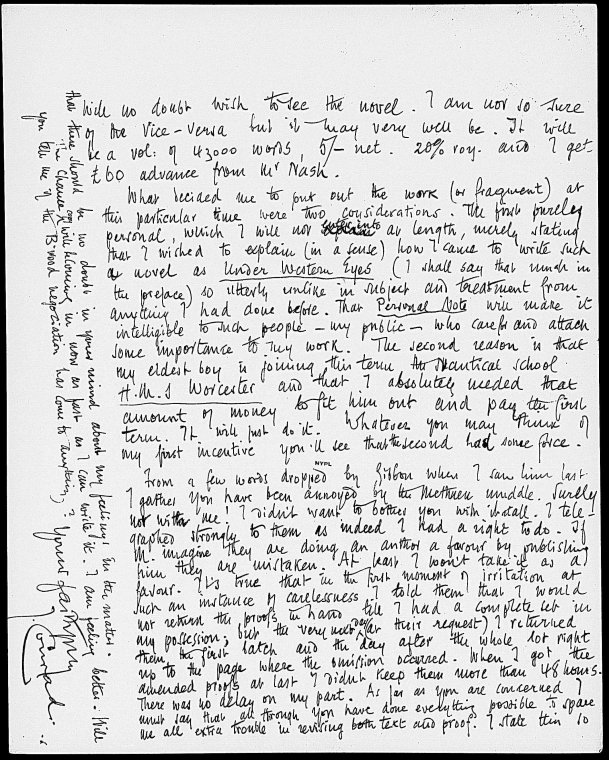 will no doubt wish to see the novel. I am not so sure
of the Vice-versa but it may very well be. It will
be a vol: of 43000 words, 5/- net. 20% roy. and I get
£60 advance from Mr Nash.
What decided me to put out the work (or fragment) at
this particular time were two considerations. The first purely
personal, which I will not at length, merely stating
that I wished to explain (in a sense) how I came to write such
a novel as Under Western Eyes (I shall say that much in
the preface) so utterly unlike in subject and treatment from
anything I had done before. That Personal Note will make it
intelligible to such people – my public – who care for and attach
some importance to my work. The second reason is that
my eldest boy is joining this term the Nautical school
H.M.S Worcester and that I absolutely needed that
amount of money to fit him out and pay the first
term. It will just do it. Whatever you may think of
my first incentive you'll see that the second had some force.
NYPL
From a few words dropped by Gibbon when I saw him last
I gather you have been annoyed by the Methuen muddle. Surely
not with me! I didn't want to bother you with it all. I tele-
graphed strongly to them as indeed I had a right to do. If
M. imagine they are doing an author a favour by publishing
him they are mistaken. At least I won't take it as a
favour. It's true that in the first moment of irritation at
such an instance of carelessness I told them that I would
not return the proofs in hand till I had a complete set in
my possession; but the very next day (at their request) I returned
them, the first batch and the day after the whole lot right
up to the page where the omission occurred. When I got the
amended proofs at last I didn't keep them more than 48 hours.
There was no delay on my part. As far as you are concerned I
must say that all through you have done everything possible to spare
me all extra trouble in revising both text and proof. I state this so
that there should be no doubt in your mind about my feelings in the matter.
The Chance copy will be coming in now as fast as I can write it. I am feeling better. Will
you tell me if the B-wood negotiation has come to anything?
Yours faithfully
J Conrad.